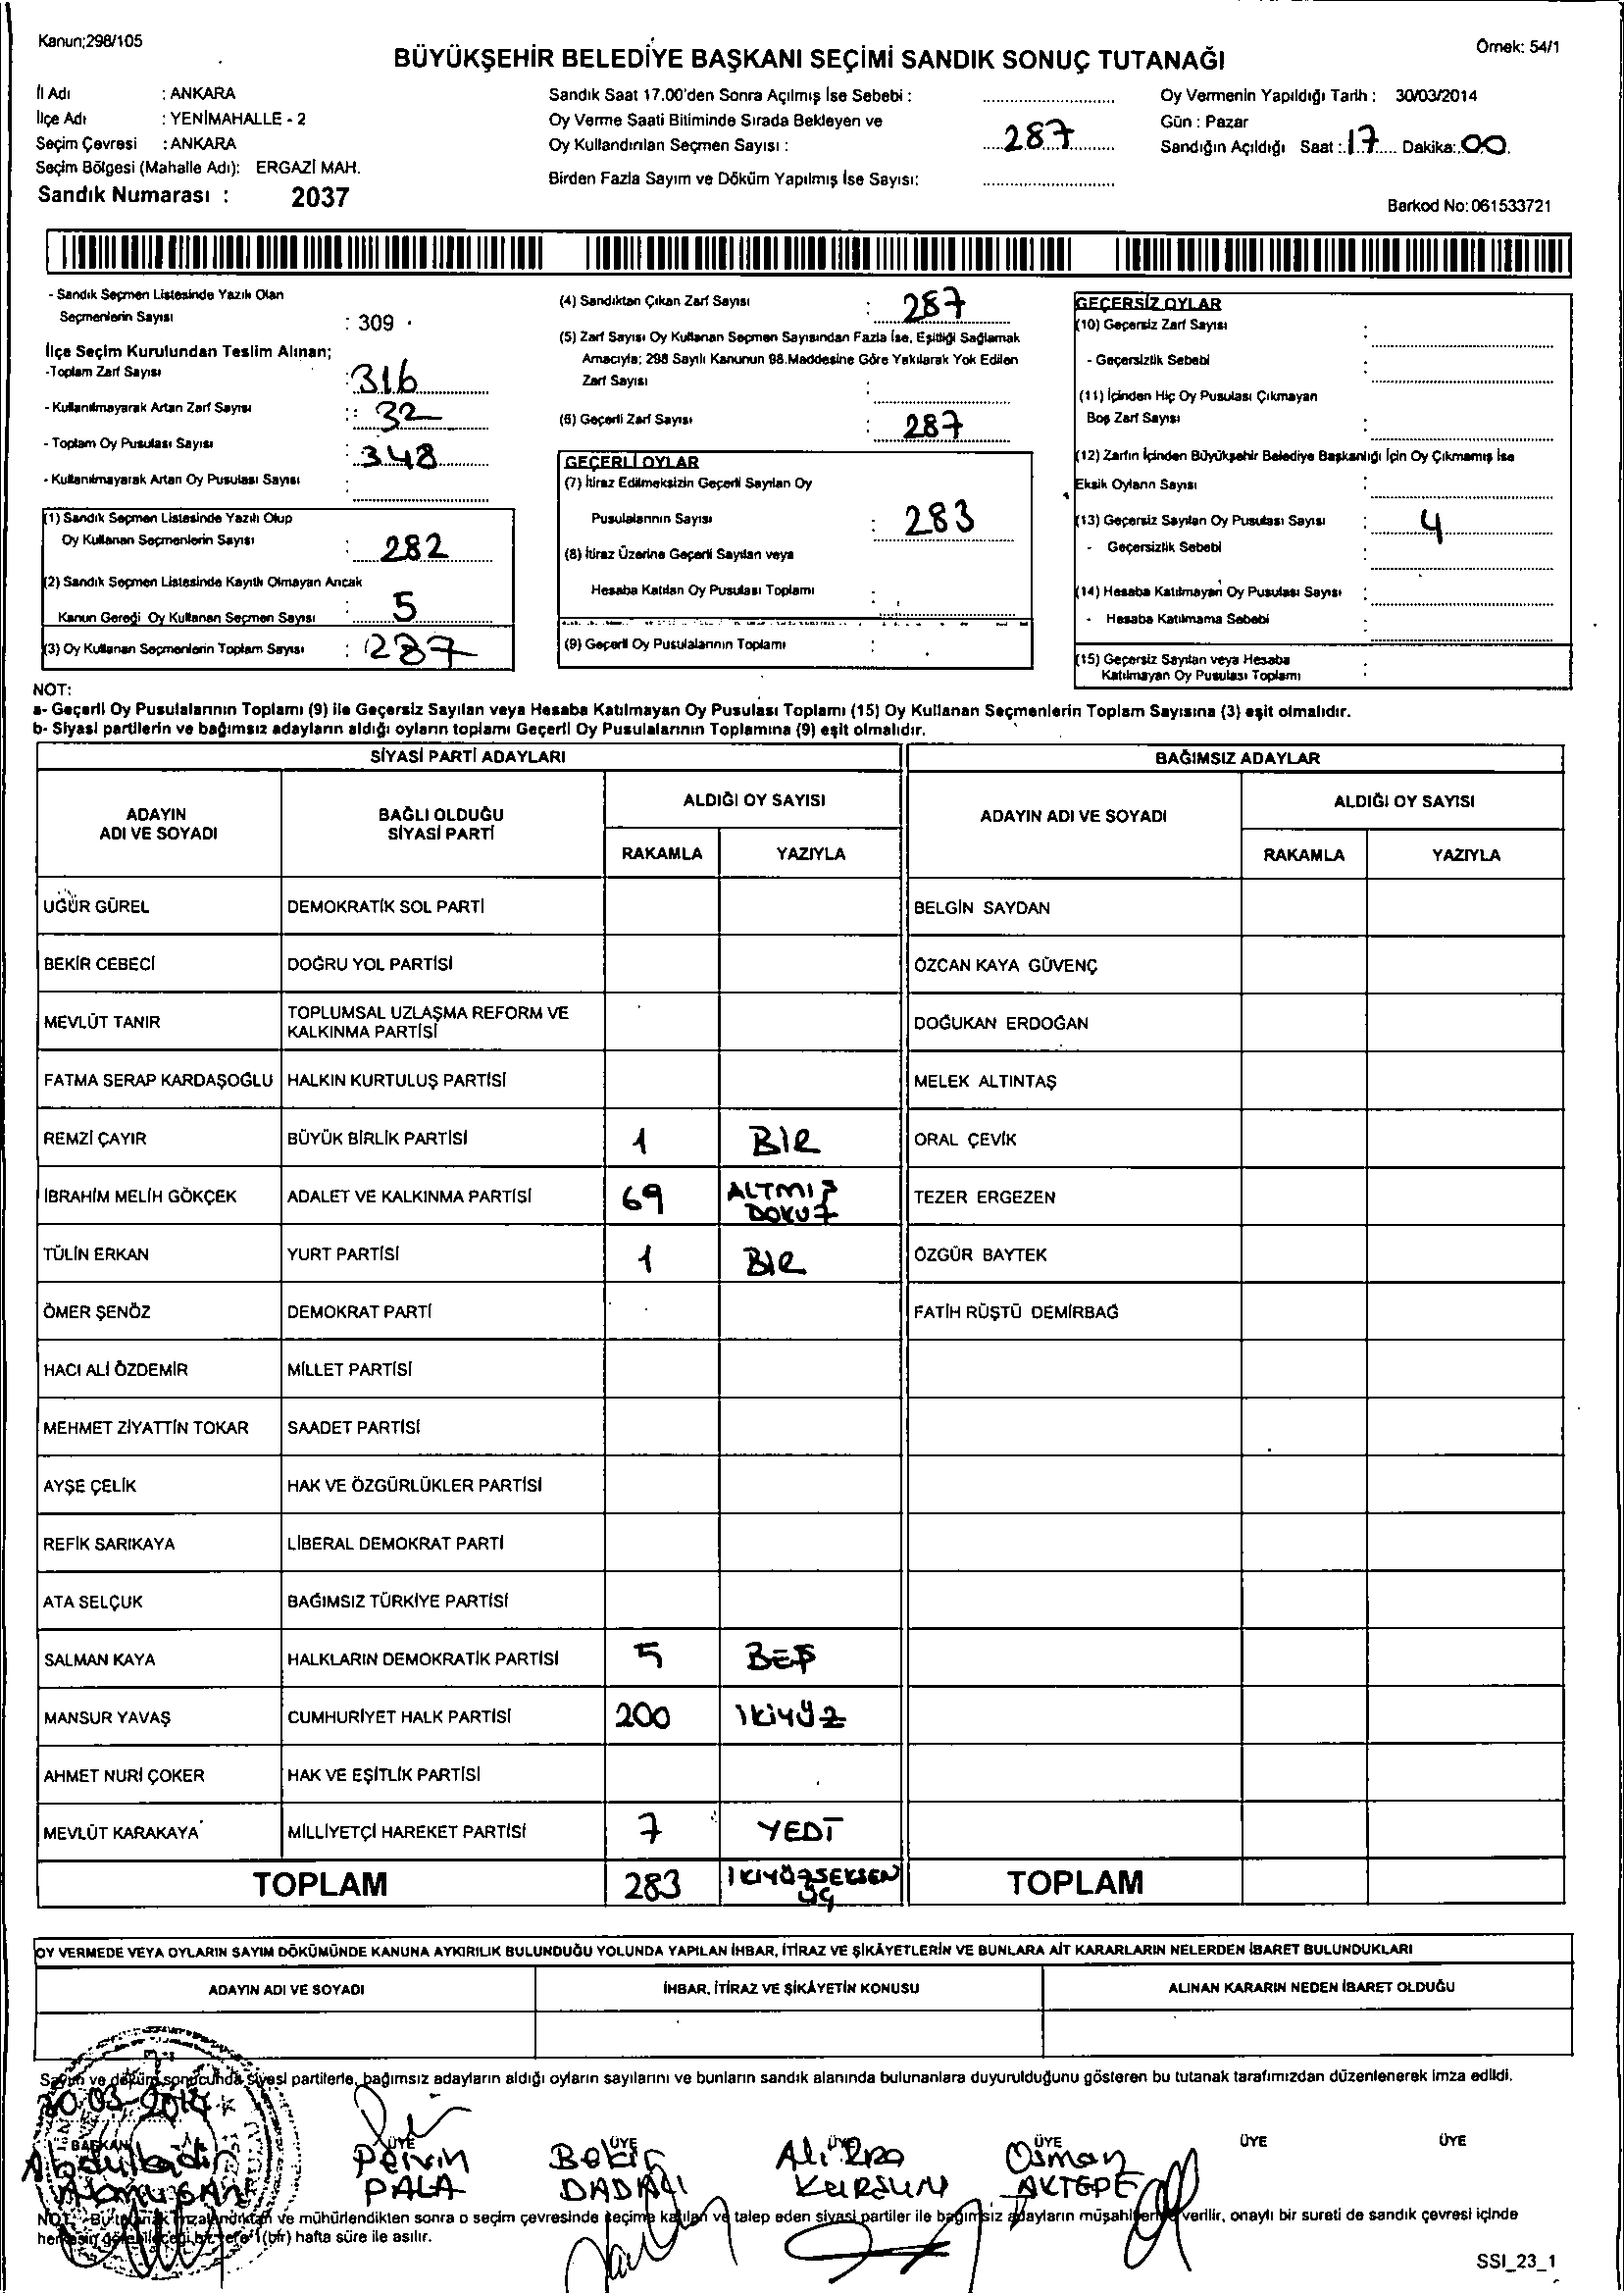 Kanun;298/105
Örnek: 54/1
BÜYÜKŞEHİR BELEDİYE BAŞKANI SEÇİMİ SANDIK SONUÇ TUTANAĞI
İl Adı : ANKARA
İlçe Adı : YENİMAHALLE - 2
Seçim Çevresi : ANKARA
Seçim Bölgesi (Mahalle Adı): ERGAZİ MAH.
Sandık Numarası : 2037
Sandık Saat 17.00'den Sonra Açılmış İse Sebebi :
Oy Verme Saati Bitiminde Sırada Bekleyen ve
Oy Kullandırılan Seçmen Sayısı : 287
Birden Fazla Sayım ve Döküm Yapılmış İse Sayısı:
Oy Vermenin Yapıldığı Tarih : 30/03/2014
Gün : Pazar
Sandığın Açıldığı Saat : 17 Dakika: 00
Barkod No: 061533721
- Sandık Seçmen Listesinde Yazılı Olan
Seçmenlerin Sayısı : 309
İlçe Seçim Kurulundan Teslim Alınan;
-Toplam Zarf Sayısı : 316
- Kullanılmayarak Artan Zarf Sayısı : 32
- Toplam Oy Pusulası Sayısı : 348
- Kullanılmayarak Artan Oy Pusulası Sayısı :
(1) Sandık Seçmen Listesinde Yazılı Olup
Oy Kullanan Seçmenlerin Sayısı : 282
(2) Sandık Seçmen Listesinde Kayıtlı Olmayan Ancak
Kanun Gereği Oy Kullanan Seçmen Sayısı : 5
(3) Oy Kullanan Seçmenlerin Toplam Sayısı : 287
(4) Sandıktan Çıkan Zarf Sayısı : 287
(5) Zarf Sayısı Oy Kullanan Seçmen Sayısından Fazla İse, Eşitliği Sağlamak
Amacıyla; 298 Sayılı Kanunun 98.Maddesine Göre Yakılarak Yok Edilen
Zarf Sayısı :
(6) Geçerli Zarf Sayısı : 287
GEÇERLİ OYLAR
(7) İtiraz Edilmeksizin Geçerli Sayılan Oy
Pusulalarının Sayısı : 283
(8) İtiraz Üzerine Geçerli Sayılan veya
Hesaba Katılan Oy Pusulası Toplamı :
(9) Geçerli Oy Pusulalarının Toplamı :
GEÇERSİZ OYLAR
(10) Geçersiz Zarf Sayısı :
- Geçersizlik Sebebi :
(11) İçinden Hiç Oy Pusulası Çıkmayan
Boş Zarf Sayısı :
(12) Zarfın İçinden Büyükşehir Belediye Başkanlığı İçin Oy Çıkmamış İse
Eksik Oyların Sayısı :
(13) Geçersiz Sayılan Oy Pusulası Sayısı : 4
- Geçersizlik Sebebi :
(14) Hesaba Katılmayan Oy Pusulası Sayısı :
- Hesaba Katılmama Sebebi :
(15) Geçersiz Sayılan veya Hesaba
Katılmayan Oy Pusulası Toplamı :
NOT:
a- Geçerli Oy Pusulalarının Toplamı (9) ile Geçersiz Sayılan veya Hesaba Katılmayan Oy Pusulası Toplamı (15) Oy Kullanan Seçmenlerin Toplam Sayısına (3) eşit olmalıdır.
b- Siyasi partilerin ve bağımsız adayların aldığı oyların toplamı Geçerli Oy Pusulalarının Toplamına (9) eşit olmalıdır.
SİYASİ PARTİ ADAYLARI BAĞIMSIZ ADAYLAR
ADAYIN ADI VE SOYADI BAĞLI OLDUĞU SİYASİ PARTİ ALDIĞI OY SAYISI ADAYIN ADI VE SOYADI ALDIĞI OY SAYISI
RAKAMLA YAZIYLA RAKAMLA YAZIYLA
UĞUR GÜREL DEMOKRATİK SOL PARTİ BELGİN SAYDAN
BEKİR CEBECİ DOĞRU YOL PARTİSİ ÖZCAN KAYA GÜVENÇ
MEVLÜT TANIR TOPLUMSAL UZLAŞMA REFORM VE KALKINMA PARTİSİ DOĞUKAN ERDOĞAN
FATMA SERAP KARDAŞOĞLU HALKIN KURTULUŞ PARTİSİ MELEK ALTINTAŞ
REMZİ ÇAYIR BÜYÜK BİRLİK PARTİSİ 1 BIR ORAL ÇEVİK
İBRAHİM MELİH GÖKÇEK ADALET VE KALKINMA PARTİSİ 69 ALTMIŞ DOKUZ TEZER ERGEZEN
TÜLİN ERKAN YURT PARTİSİ 1 BIR ÖZGÜR BAYTEK
ÖMER ŞENÖZ DEMOKRAT PARTİ FATİH RÜŞTÜ DEMİRBAĞ
HACI ALİ ÖZDEMİR MİLLET PARTİSİ
MEHMET ZİYATTİN TOKAR SAADET PARTİSİ
AYŞE ÇELİK HAK VE ÖZGÜRLÜKLER PARTİSİ
REFİK SARIKAYA LİBERAL DEMOKRAT PARTİ
ATA SELÇUK BAĞIMSIZ TÜRKİYE PARTİSİ
SALMAN KAYA HALKLARIN DEMOKRATİK PARTİSİ 5 BEŞ
MANSUR YAVAŞ CUMHURİYET HALK PARTİSİ 200 İKİYÜZ
AHMET NURİ ÇOKER HAK VE EŞİTLİK PARTİSİ
MEVLÜT KARAKAYA MİLLİYETÇİ HAREKET PARTİSİ 7 YEDİ
TOPLAM 283 İKİYÜZSEKSEN ÜÇ TOPLAM
OY VERMEDE VEYA OYLARIN SAYIM DÖKÜMÜNDE KANUNA AYKIRILIK BULUNDUĞU YOLUNDA YAPILAN İHBAR, İTİRAZ VE ŞİKÂYETLERİN VE BUNLARA AİT KARARLARIN NELERDEN İBARET BULUNDUKLARI
ADAYIN ADI VE SOYADI İHBAR, İTİRAZ VE ŞİKÂYETİN KONUSU ALINAN KARARIN NEDEN İBARET OLDUĞU
Sayım ve döküm sonucunda siyasi partilerle, bağımsız adayların aldığı oyların sayılarını ve bunların sandık alanında bulunanlara duyurulduğunu gösteren bu tutanak tarafımızdan düzenlenerek imza edildi.
30.03.2014
BAŞKAN ÜYE ÜYE ÜYE ÜYE ÜYE ÜYE
Abdulkadir Pervin Bekir Ali Rıza Osman
PALA DADALI KURŞUN AKTEPE
NOT: Bu tutanak imzalandıktan ve mühürlendikten sonra o seçim çevresinde seçime katılan ve talep eden siyasi partiler ile bağımsız adayların müşahitlerine verilir, onaylı bir sureti de sandık çevresi içinde
herkesin görebileceği bir yere 1 (bir) hafta süre ile asılır.
SSI_23_1